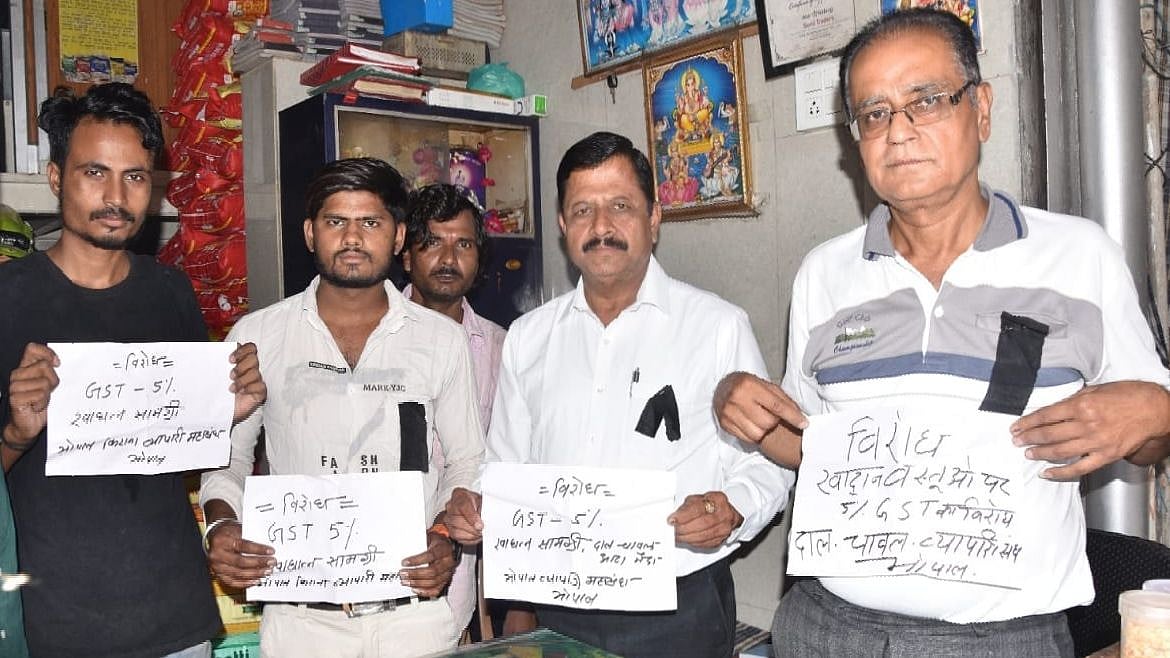 = विरोध =
GST - 5%
खाद्यान्न सामग्री
भोपाल किराना व्यापारी महासंघ
भोपाल
= विरोध =
GST 5%
खाद्यान्न सामग्री
भोपाल किराना व्यापारी महा
= विरोध =
GST - 5%.
खाद्यान्न सामग्री, दाल-चावल
आटा मैदा
भोपाल व्यापारी महासंघ
भोपाल
विरोध
खाद्यान वस्तूओ पर
5% GST का विरोध
दाल. चावल. व्यापारी संघ
भोपाल.
MARK-YJC
FASH
Championship